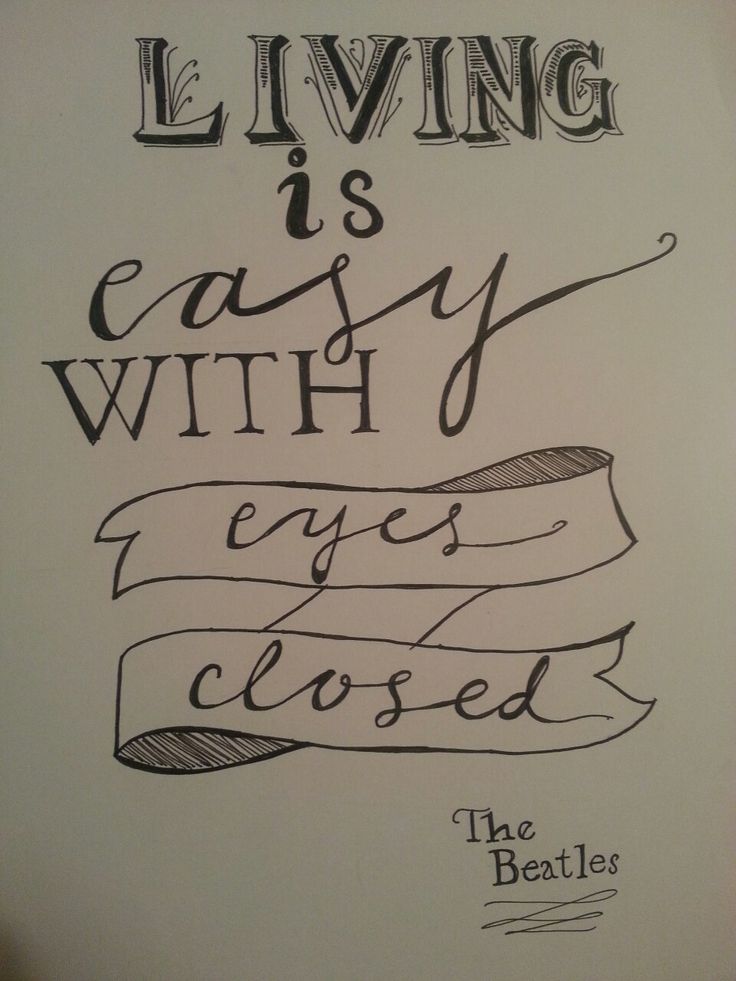 LIVING
is
easy
WITH
eyes
closed
The
Beatles